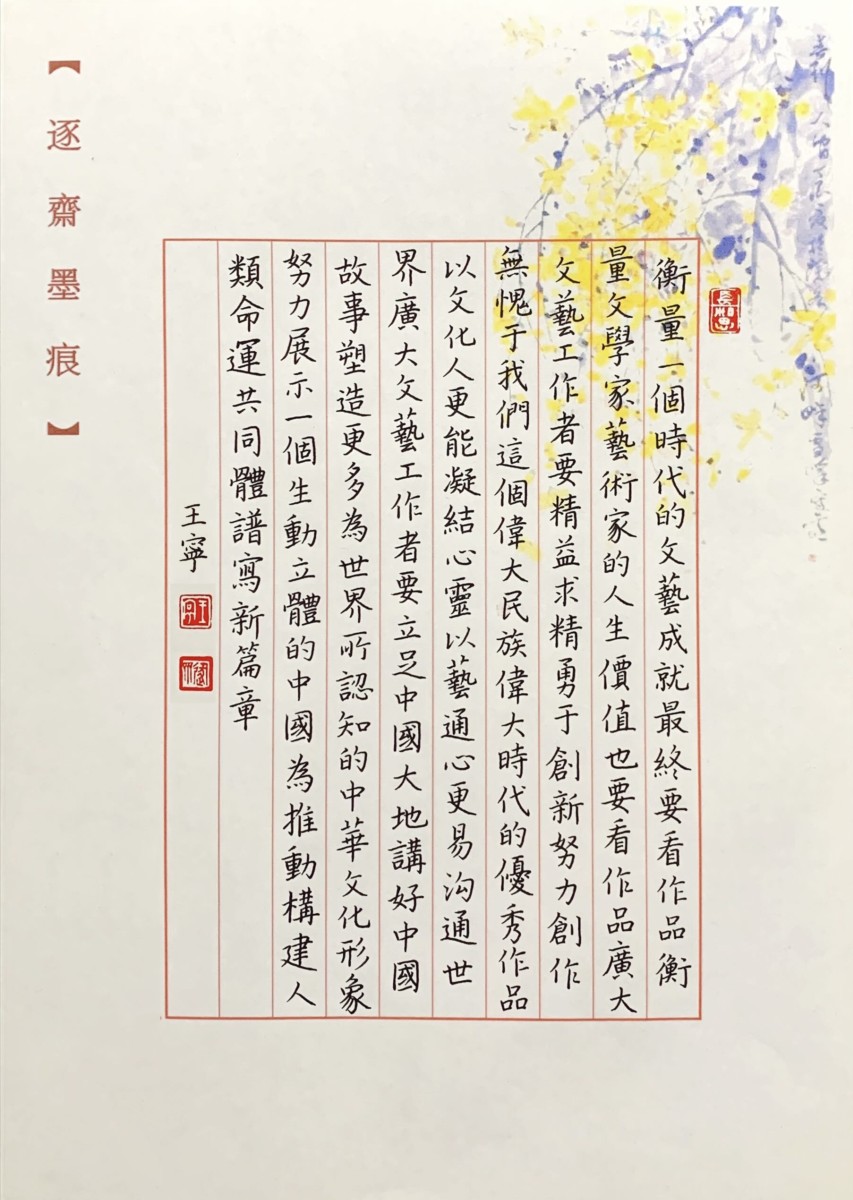 衡量一個時代的文藝成就最終要看作品衡
量文學家藝術家的人生價值也要看作品廣大
文藝工作者要精益求精勇于創新努力創作
無愧于我們這個偉大民族偉大時代的優秀作品
以文化人更能凝結心靈以藝通心更易沟通世
界廣大文藝工作者要立足中國大地講好中國
故事塑造更多為世界所認知的中華文化形象
努力展示一個生動立體的中國為推動構建人
類命運共同體譜寫新篇章
王寧
【逐齋墨痕】